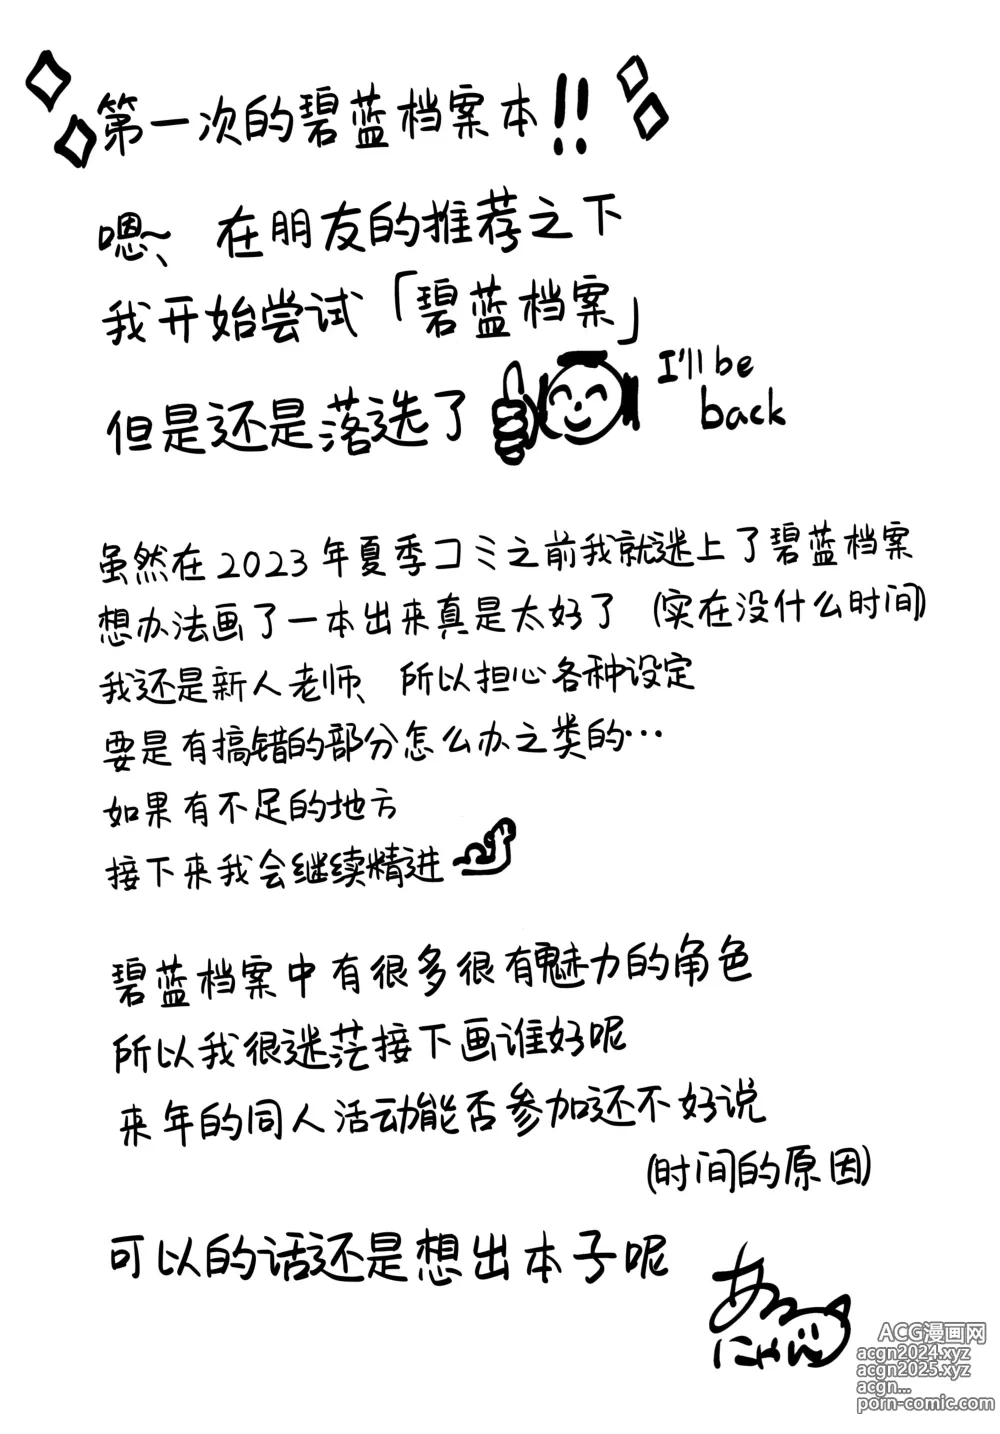 第一次的碧蓝档案本!!
嗯~、在朋友的推荐之下
我开始尝试「碧蓝档案」
但是还是落选了
I'll be
back
虽然在2023年夏季コミ之前我就迷上了碧蓝档案
想办法画了一本出来真是太好了(实在没什么时间)
我还是新人老师、所以担心各种设定
要是有搞错的部分怎么办之类的…
如果有不足的地方
接下来我会继续精进
碧蓝档案中有很多很有魅力的角色
所以我很迷茫接下画谁好呢
来年的同人活动能否参加还不好说
(时间的原因)
可以的话还是想出本子呢
にゃん
ACG漫画网
acgn2024.xyz
acgn2025.xyz
acgn...
porn-comic.com